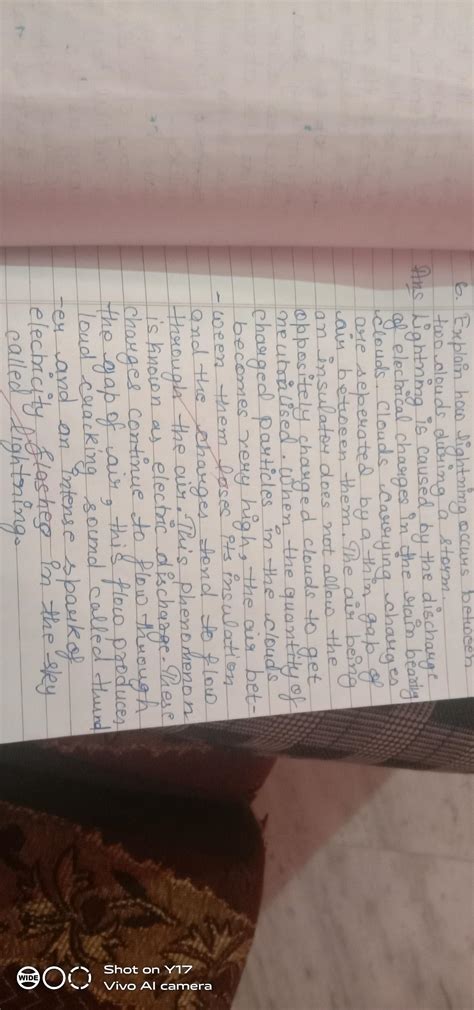 6. Explain how lightning occurs between
two clouds during a storm.
Ans Lightning is caused by the discharge
of electrical charges in the rain bearing
clouds. Clouds carrying charges
are seperated by a thin gap of
air between them. The air being
an insulator does not allow the
oppositely charged clouds to get
neutrilised. When the quantity of
charged particles in the clouds
becomes very high, the air bet-
-ween them loses its insulation
and the charges tend to flow
through the air. This phenomenon
is known as electric discharge. These
charges continue to flow through
the gap of air, this flow produces
loud cracking sound called thund
-er and an intense spark of
electricity flashes in the sky
called lightning.
WIDE
Shot on Y17
Vivo AI camera